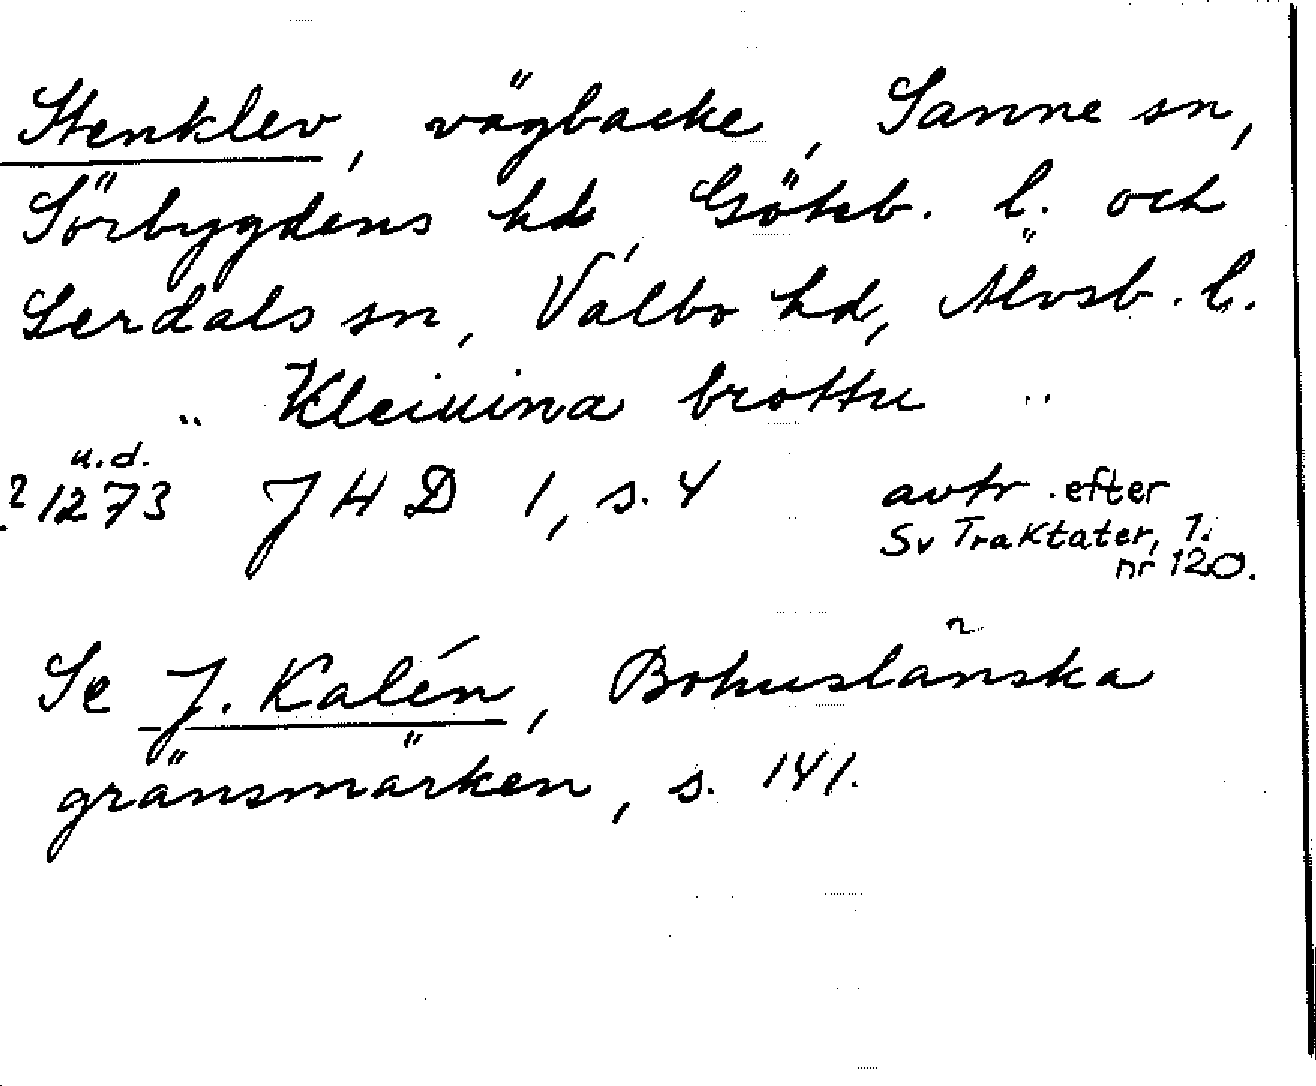 Stenklev, vägbacke, Sanne sn,
Sörbygdens hd, Göteb. l. och
Lerdals sn, Valbo hd, Älvsb. l.
.. Kleiuina brottu ..
u.d.
? 1273 JHD 1, s. 4 avtr. efter
Sv Traktater, 1:
nr 120.
Se J. Kalén, Bohuslänska
gränsmärken, s. 141.